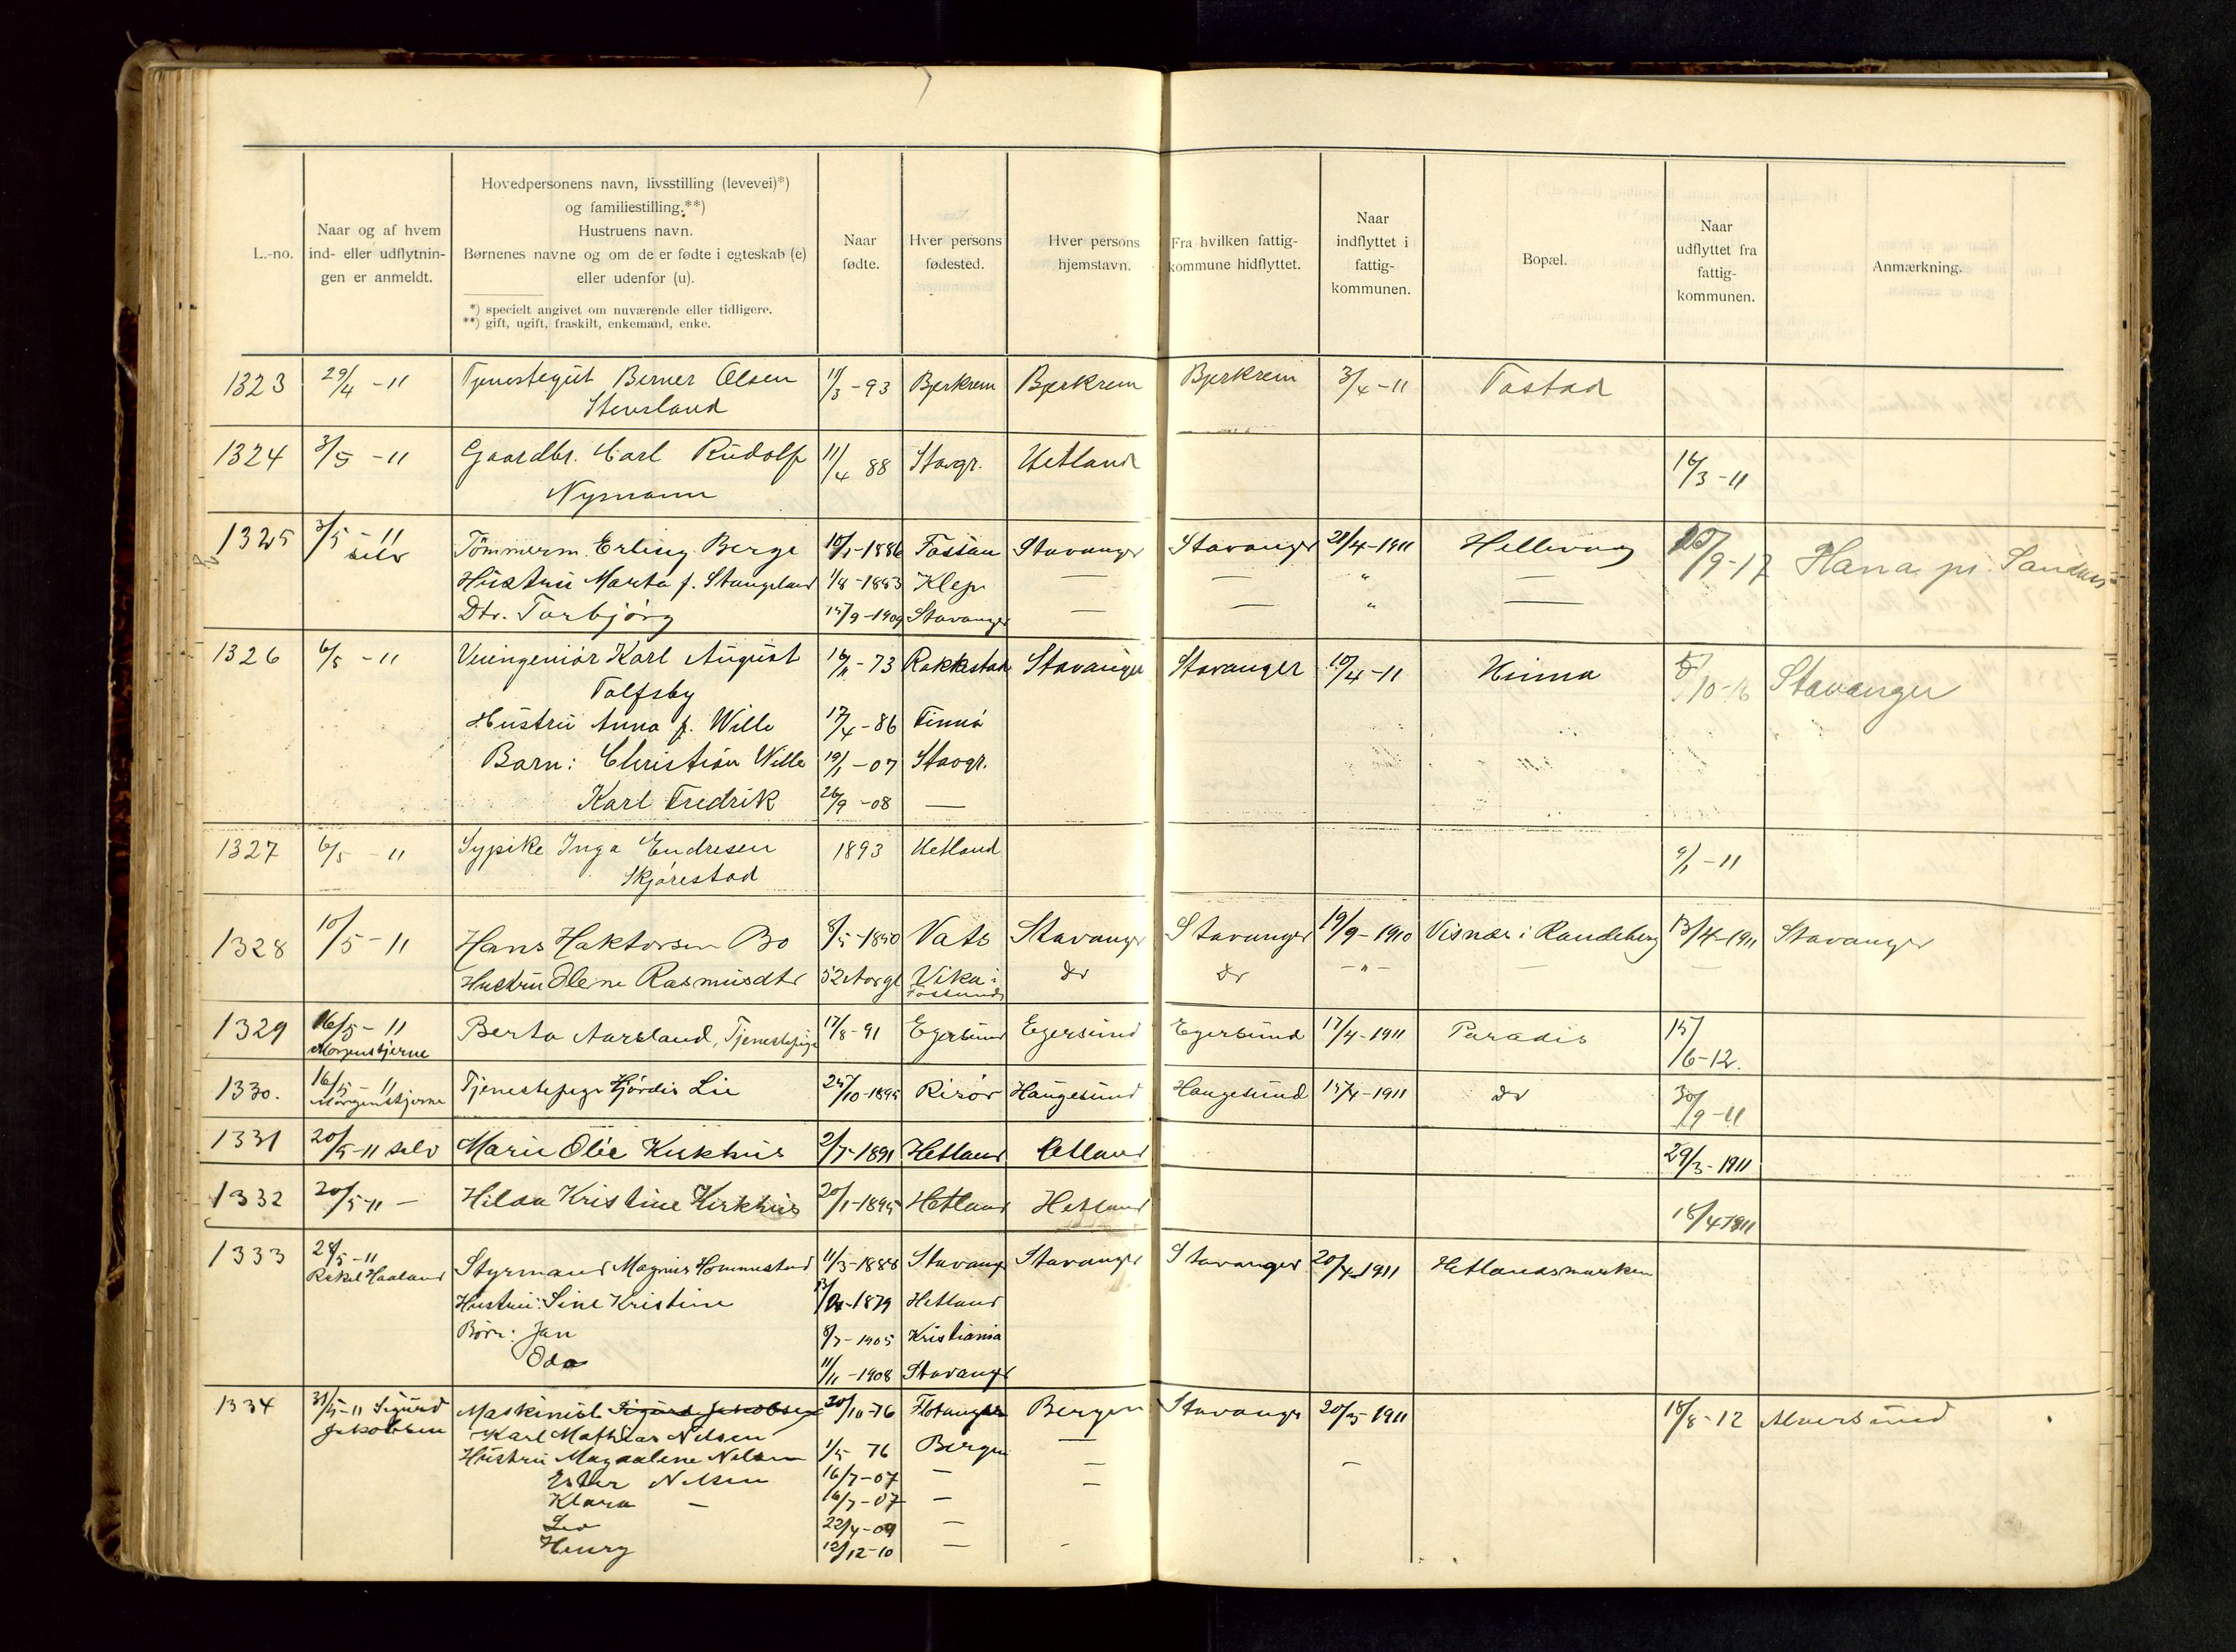 L.-no.
Naar og af hvem
ind- eller udflytnin-
gen er anmeldt.
Hovedpersonens navn, livsstilling (levevei)*)
og familiestilling.**)
Hustruens navn.
Børnenes navne og om de er fødte i egteskab (e)
eller udenfor (u).
*) specielt angivet om nuværende eller tidligere.
**) gift, ugift, fraskilt, enkemand, enke.
Naar
fødte.
Hver persons
fødested.
Hver persons
hjemstavn.
Fra hvilken fattig-
kommune hidflyttet.
Naar
indflyttet i
fattig-
kommunen.
Bopæl.
Naar
udflyttet fra
fattig-
kommunen.
Anmærkning.
1323 29/4 -11 Tjenestegut Berner Olsen 11/3 -93 Bjerkrem Bjerkrem Bjerkrem 3/4 -11 Tastad
Stensland
1324 3/5 -11 Gaardbr. Carl Rudolf 11/4 88 Stavgr. Hetland 16/3 -11
Nymann
1325 3/5 -11 selv Tömmerm. Erling Berge -1886 Fossan Stavanger Stavanger 28/4-1911 Hillevaag /9-17 Hana pr. Sandnes
Hustru Marta f. Stangeland 1/8-1883 Klep — — " —
Dtr. Torbjörg 15/9-1909 Stavanger — — " —
1326 6/5 -11 Veiingeniör Karl August -73 Rakkestad Stavanger Stavanger 10/4-11 Hinna /10-16 Stavanger
Tolfsby
Hustru Anna f. Wille 17/4-86 Finnö
Barn: Christian Wille 19/1-07 Stavgr.
Karl Fredrik 26/9-08 —
1327 6/5 -11 Sypike Inga Endresen 1893 Hetland -11
Skjörestad
1328 10/5-11 Hans Haktorsen Bö 8/5-1850 Vats Stavanger Stavanger 19/9-1910 Visnæs i Randeberg 13/4-1911 Stavanger
Hustru Olene Rasmusdtr 52 Aar gl Vika i Fossund do do -"- — —
1329 16/5-11 Morgenstjerne Berta Aarsland, Tjenestepige 17/8-91 Egersund Egersund Egersund 17/4-1911 Paradis 15/6-12.
1330. 16/5-11 Morgenstjerne Tjenestepige Hjördis Lie 25/10-1895 Risör Haugesund Haugesund 15/4-1911 do 30/9-11
1331 20/5-11 selv Marie Olée Kirkhus 2/7-1891 Hetland Hetland 29/3-1911
1332 20/5-11 — Hilda Kristine Kirkhus 20/1-1895 Hetland Hetland 18/4-1911
1333 28/5-11 Rakel Haaland Styrmand Magnus Hommestad 11/3-1888 Stavanger Stavanger Stavanger 20/4-1911 Hetlandsmarken
Hustru: Sine Kristine -1879 Hetland
Börn: Jan 8/7-1905 Kristiania
Oda 11/11-1908 Stavanger
1334 31/5-11 Sigurd Jakobsen Maskinist Sigurd Jakobsen 30/10-76 Bergen Stavanger 20/5-1911 18/8-12 Alversund
Karl Mathias Nelsen
Hustru Magdalene Nelsen 1/5 76 Bergen —
Ester Nelsen 16/7-07 — —
Klara — 16/7-07 — —
22/4-09 —
Henry 12/12-10 —